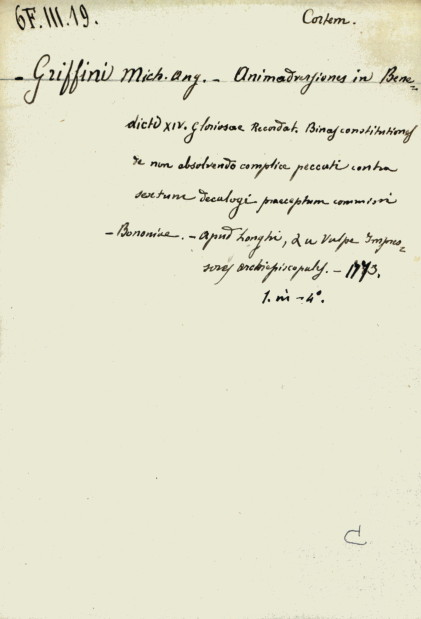 6F.III.19.
Cortem.
- Griffini Mich. Ang. - Animadversiones in Bene=
dicti XIV. Gloriosae Recordat. Binas constitutiones
de non absolvendo complice peccati contra
sextum decalogi praeceptum commissi
- Bononiae. - Apud Longhi, & a Vulpe Impres=
sores archiepiscopales. - 1773.
1. in - 4°.
C